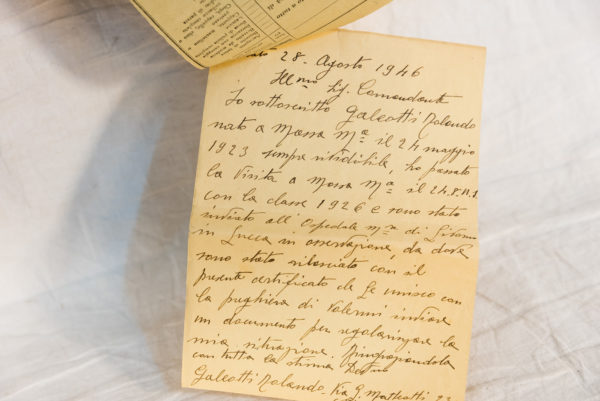 28. Agosto 1946
Ill.mo Sig. Comandante
Io sottoscritto Galeotti Rolando
nato a Massa M.ma il 24 maggio
1923 sempre rividibile, ho passato
la visita a Massa M.ma il 24.8.
con la classe 1926 e sono stato
inviato all' Ospedale m.re di Livorno
in Lucca in osservazione, da dove
sono stato rilasciato con il
presente certificato che Le unisco con
la preghiera di volermi inviare
un documento per regolarizzare la
mia situazione. Ringraziandola
con tutta la stima
Galeotti Rolando. Via G. Matteotti